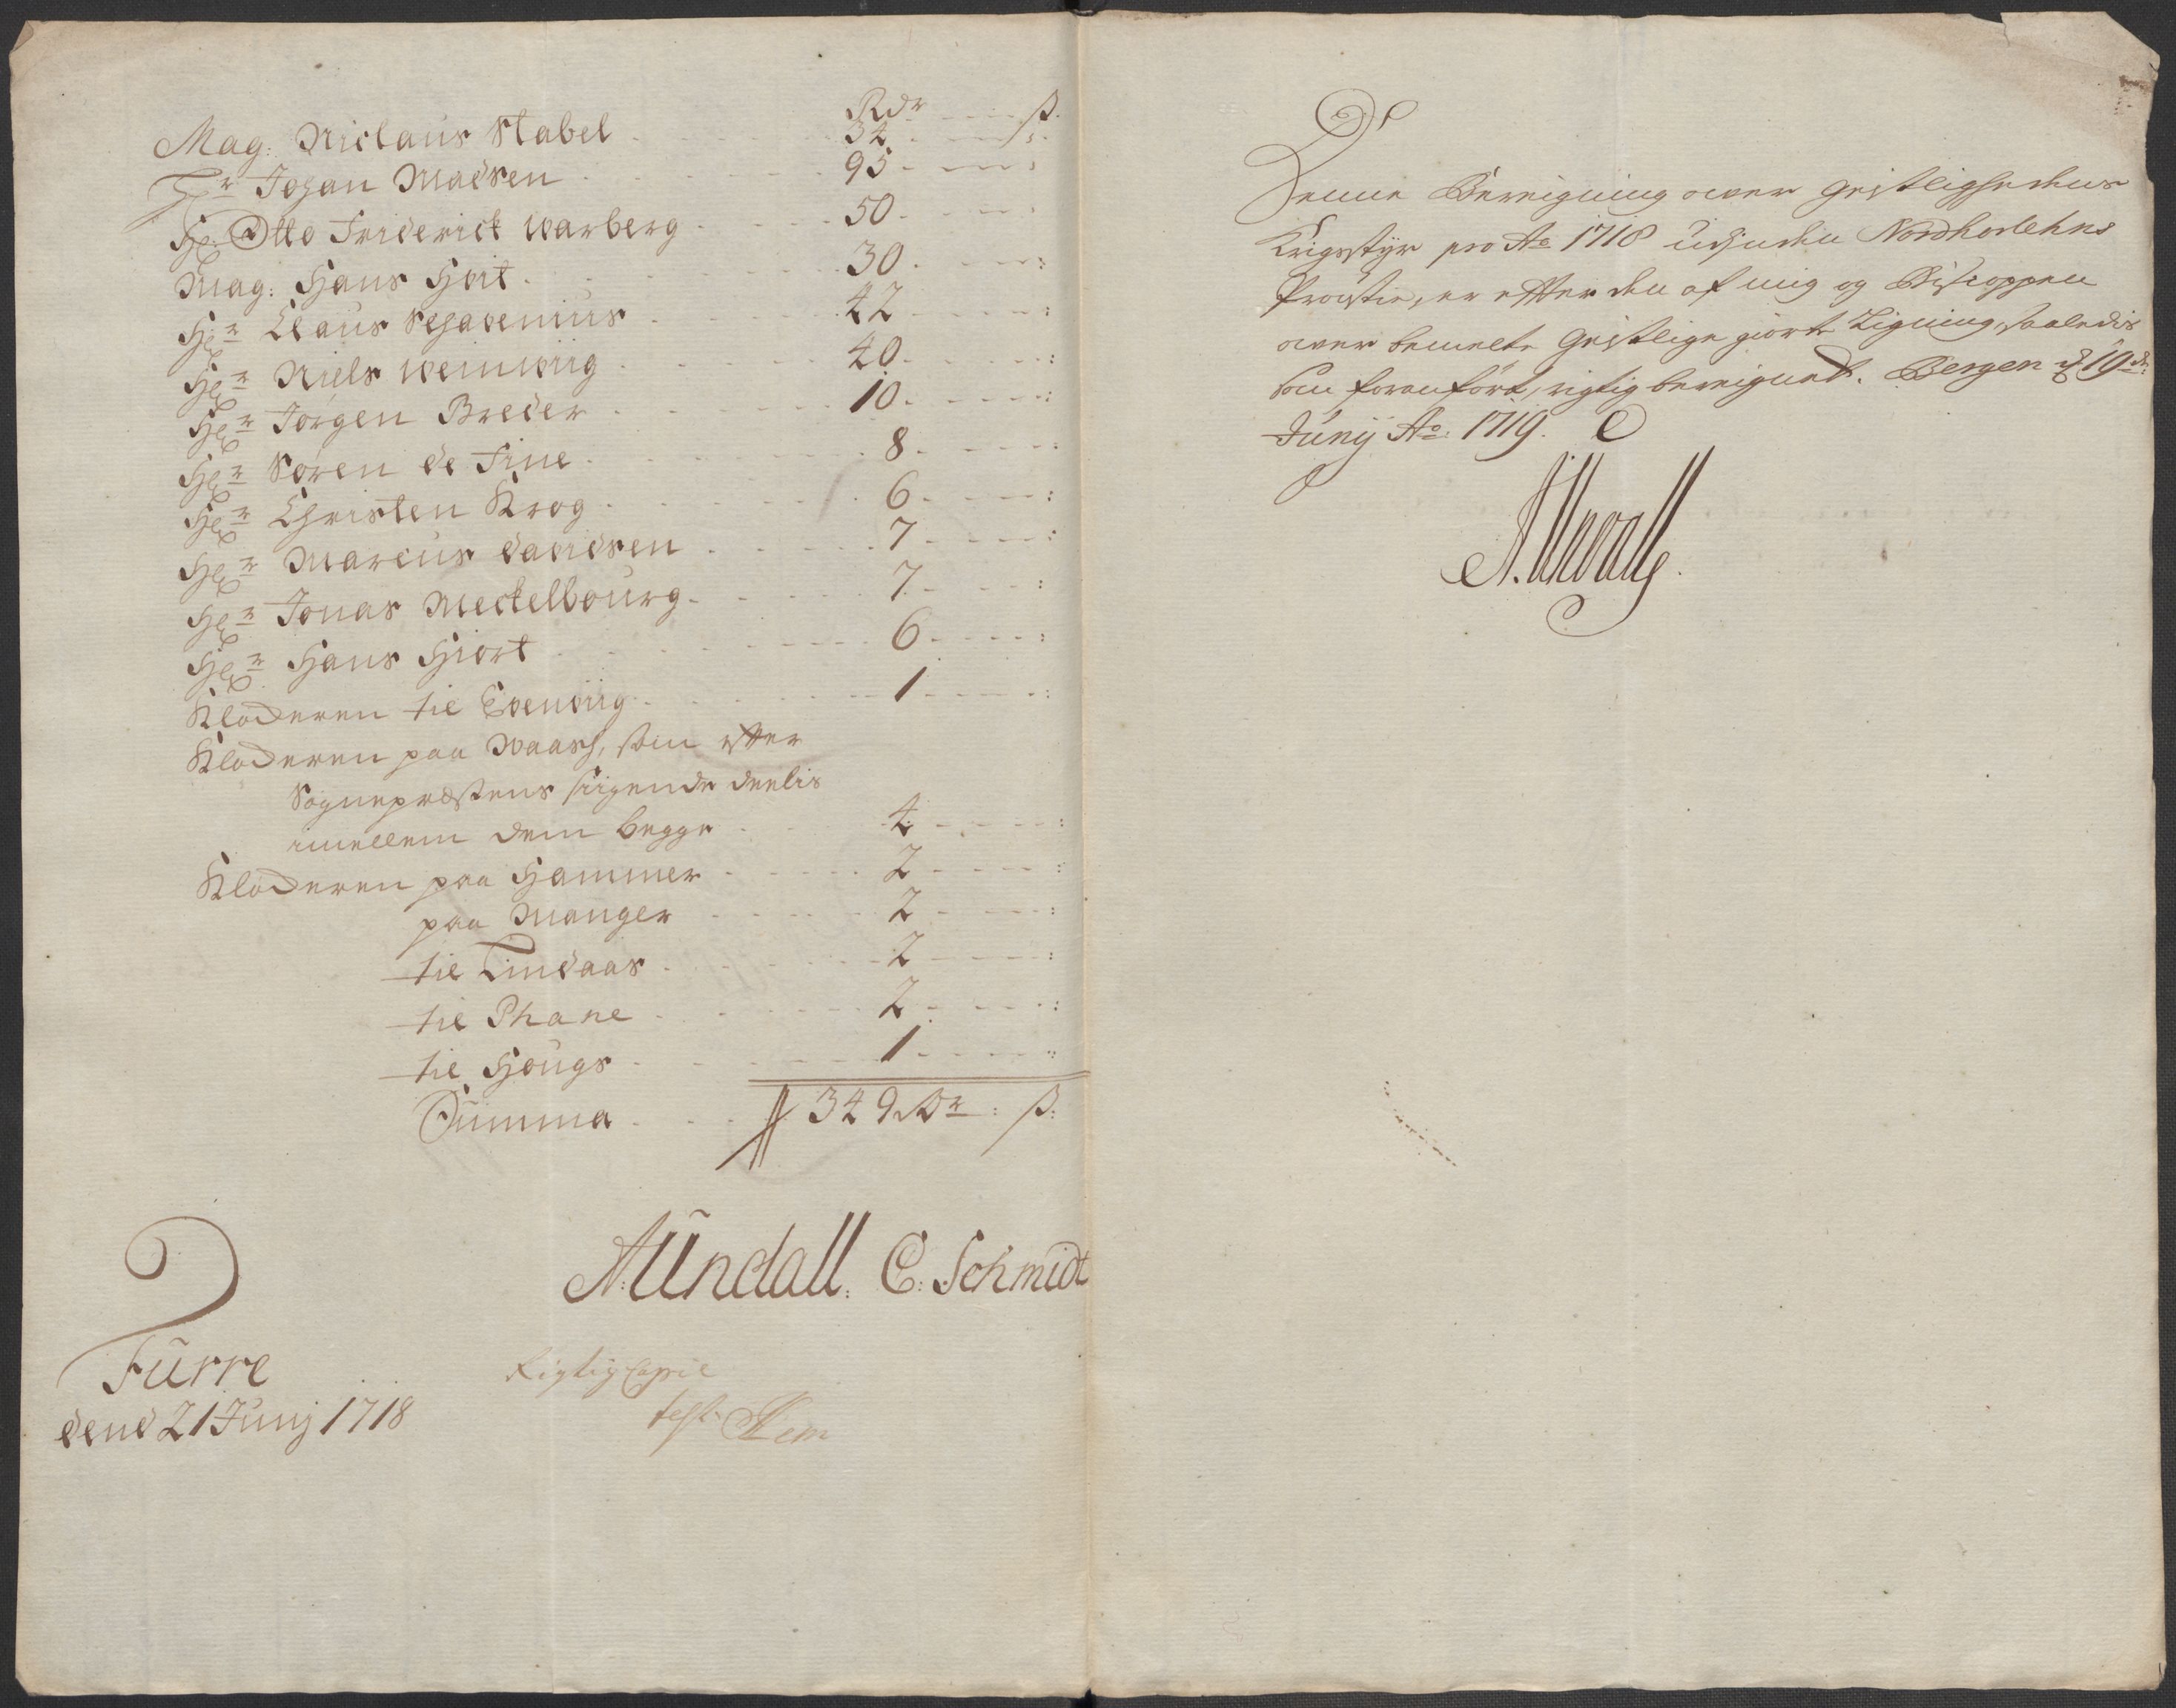 Rdr ß.
Mag: Niclaus Stabel 34
Hr Johan Madsen 95
Hr: Otto Friderick Warberg 50
Mag: Hans Hvit 30
Hr Claus Schavenius 42
Hr Niels Weinwiig 40
Hr Jørgen Breder 10
Hr Søren de Fine 8
Hr Christen Krog 6
Hr Marcus Davidsen 7
Hr Jonas Meckelbourg 7
Hr Hans Hiort 6
Klockeren til Evenviig 1
Klockeren paa Waasß, som efter
Sognepræstens siigende deelis
imellem dem begge 4
Klockeren paa Hammer 2
paa Manger 2
til Lindaas 2
til Phane 2
til Hougs 1
Summa 349 Rdr: ß:
A: Undall. C: Schmidt
Furre
dend 21 Junj 1718
Rigtig Copie
test
Denne Bereigning over Geistlighedens
Krigsstyr pro Ao 1718 udj den Nordhorlehns
Proustie, er efter den af mig og Biscoppen
over bemelte Geistlige giorte Ligning, saaledis
som foranført, rigtig bereignet. Bergen d 19de
Junij Ao: 1719.
A. Undall.